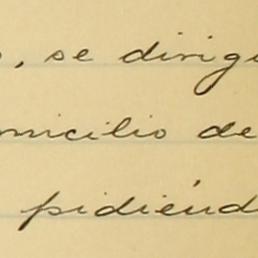 , se dirig
micilio de
pidiénd